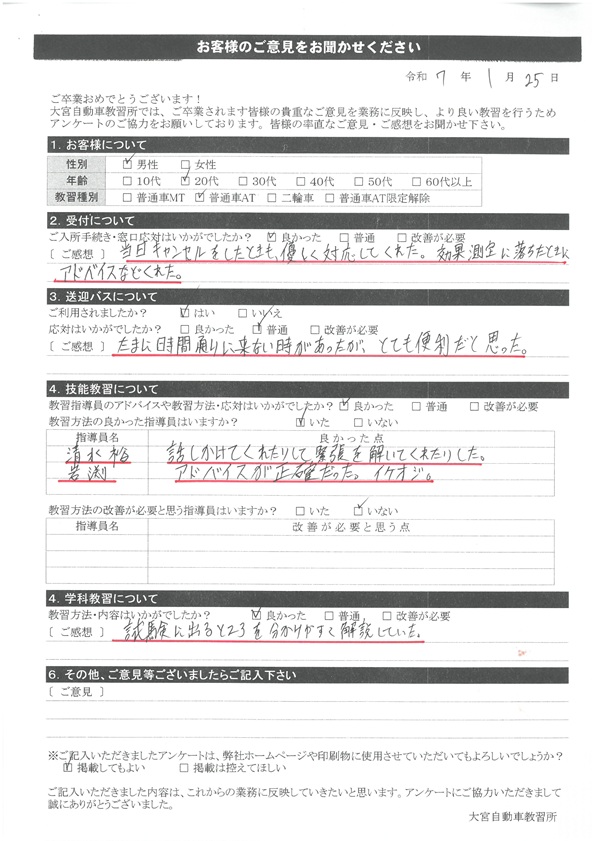 お客様のご意見をお聞かせください
令和 7 年 1 月 25 日
ご卒業おめでとうございます！
大宮自動車教習所では、ご卒業されます皆様の貴重なご意見を業務に反映し、より良い教習を行うため
アンケートのご協力をお願いしております。皆様の率直なご意見・ご感想をお聞かせ下さい。
1. お客様について
性別 ☑男性 □女性
年齢 □10代 ☑20代 □30代 □40代 □50代 □60代以上
教習種別 □普通車MT ☑普通車AT □二輪車 □普通車AT限定解除
2. 受付について
ご入所手続き・窓口応対はいかがでしたか？ ☑良かった □普通 □改善が必要
〔 ご感想 〕 当日キャンセルをしたときも、優しく対応してくれた。効果測定に落ちたときに
アドバイスなどくれた。
3. 送迎バスについて
ご利用されましたか？ ☑はい □いいえ
応対はいかがでしたか？ □良かった ☑普通 □改善が必要
〔 ご感想 〕 たまに時間通りに来ない時があったが、とても便利だと思った。
4. 技能教習について
教習指導員のアドバイスや教習方法・応対はいかがでしたか？ ☑良かった □普通 □改善が必要
教習方法の良かった指導員はいますか？ ☑いた □いない
指導員名 良かった点
清水裕 話しかけてくれたりして緊張を解いてくれたりした。
岩渕 アドバイスが正確だった。イケオジ。
教習方法の改善が必要と思う指導員はいますか？ □いた ☑いない
指導員名 改善が必要と思う点
4. 学科教習について
教習方法・内容はいかがでしたか？ ☑良かった □普通 □改善が必要
〔 ご感想 〕 試験に出るところを分かりやすく解説していた。
6. その他、ご意見等ございましたらご記入下さい
〔 ご意見 〕
※ご記入いただきましたアンケートは、弊社ホームページや印刷物に使用させていただいてもよろしいでしょうか？
☑掲載してもよい □掲載は控えてほしい
ご記入いただきました内容は、これからの業務に反映していきたいと思います。アンケートにご協力いただきまして
誠にありがとうございました。
大宮自動車教習所